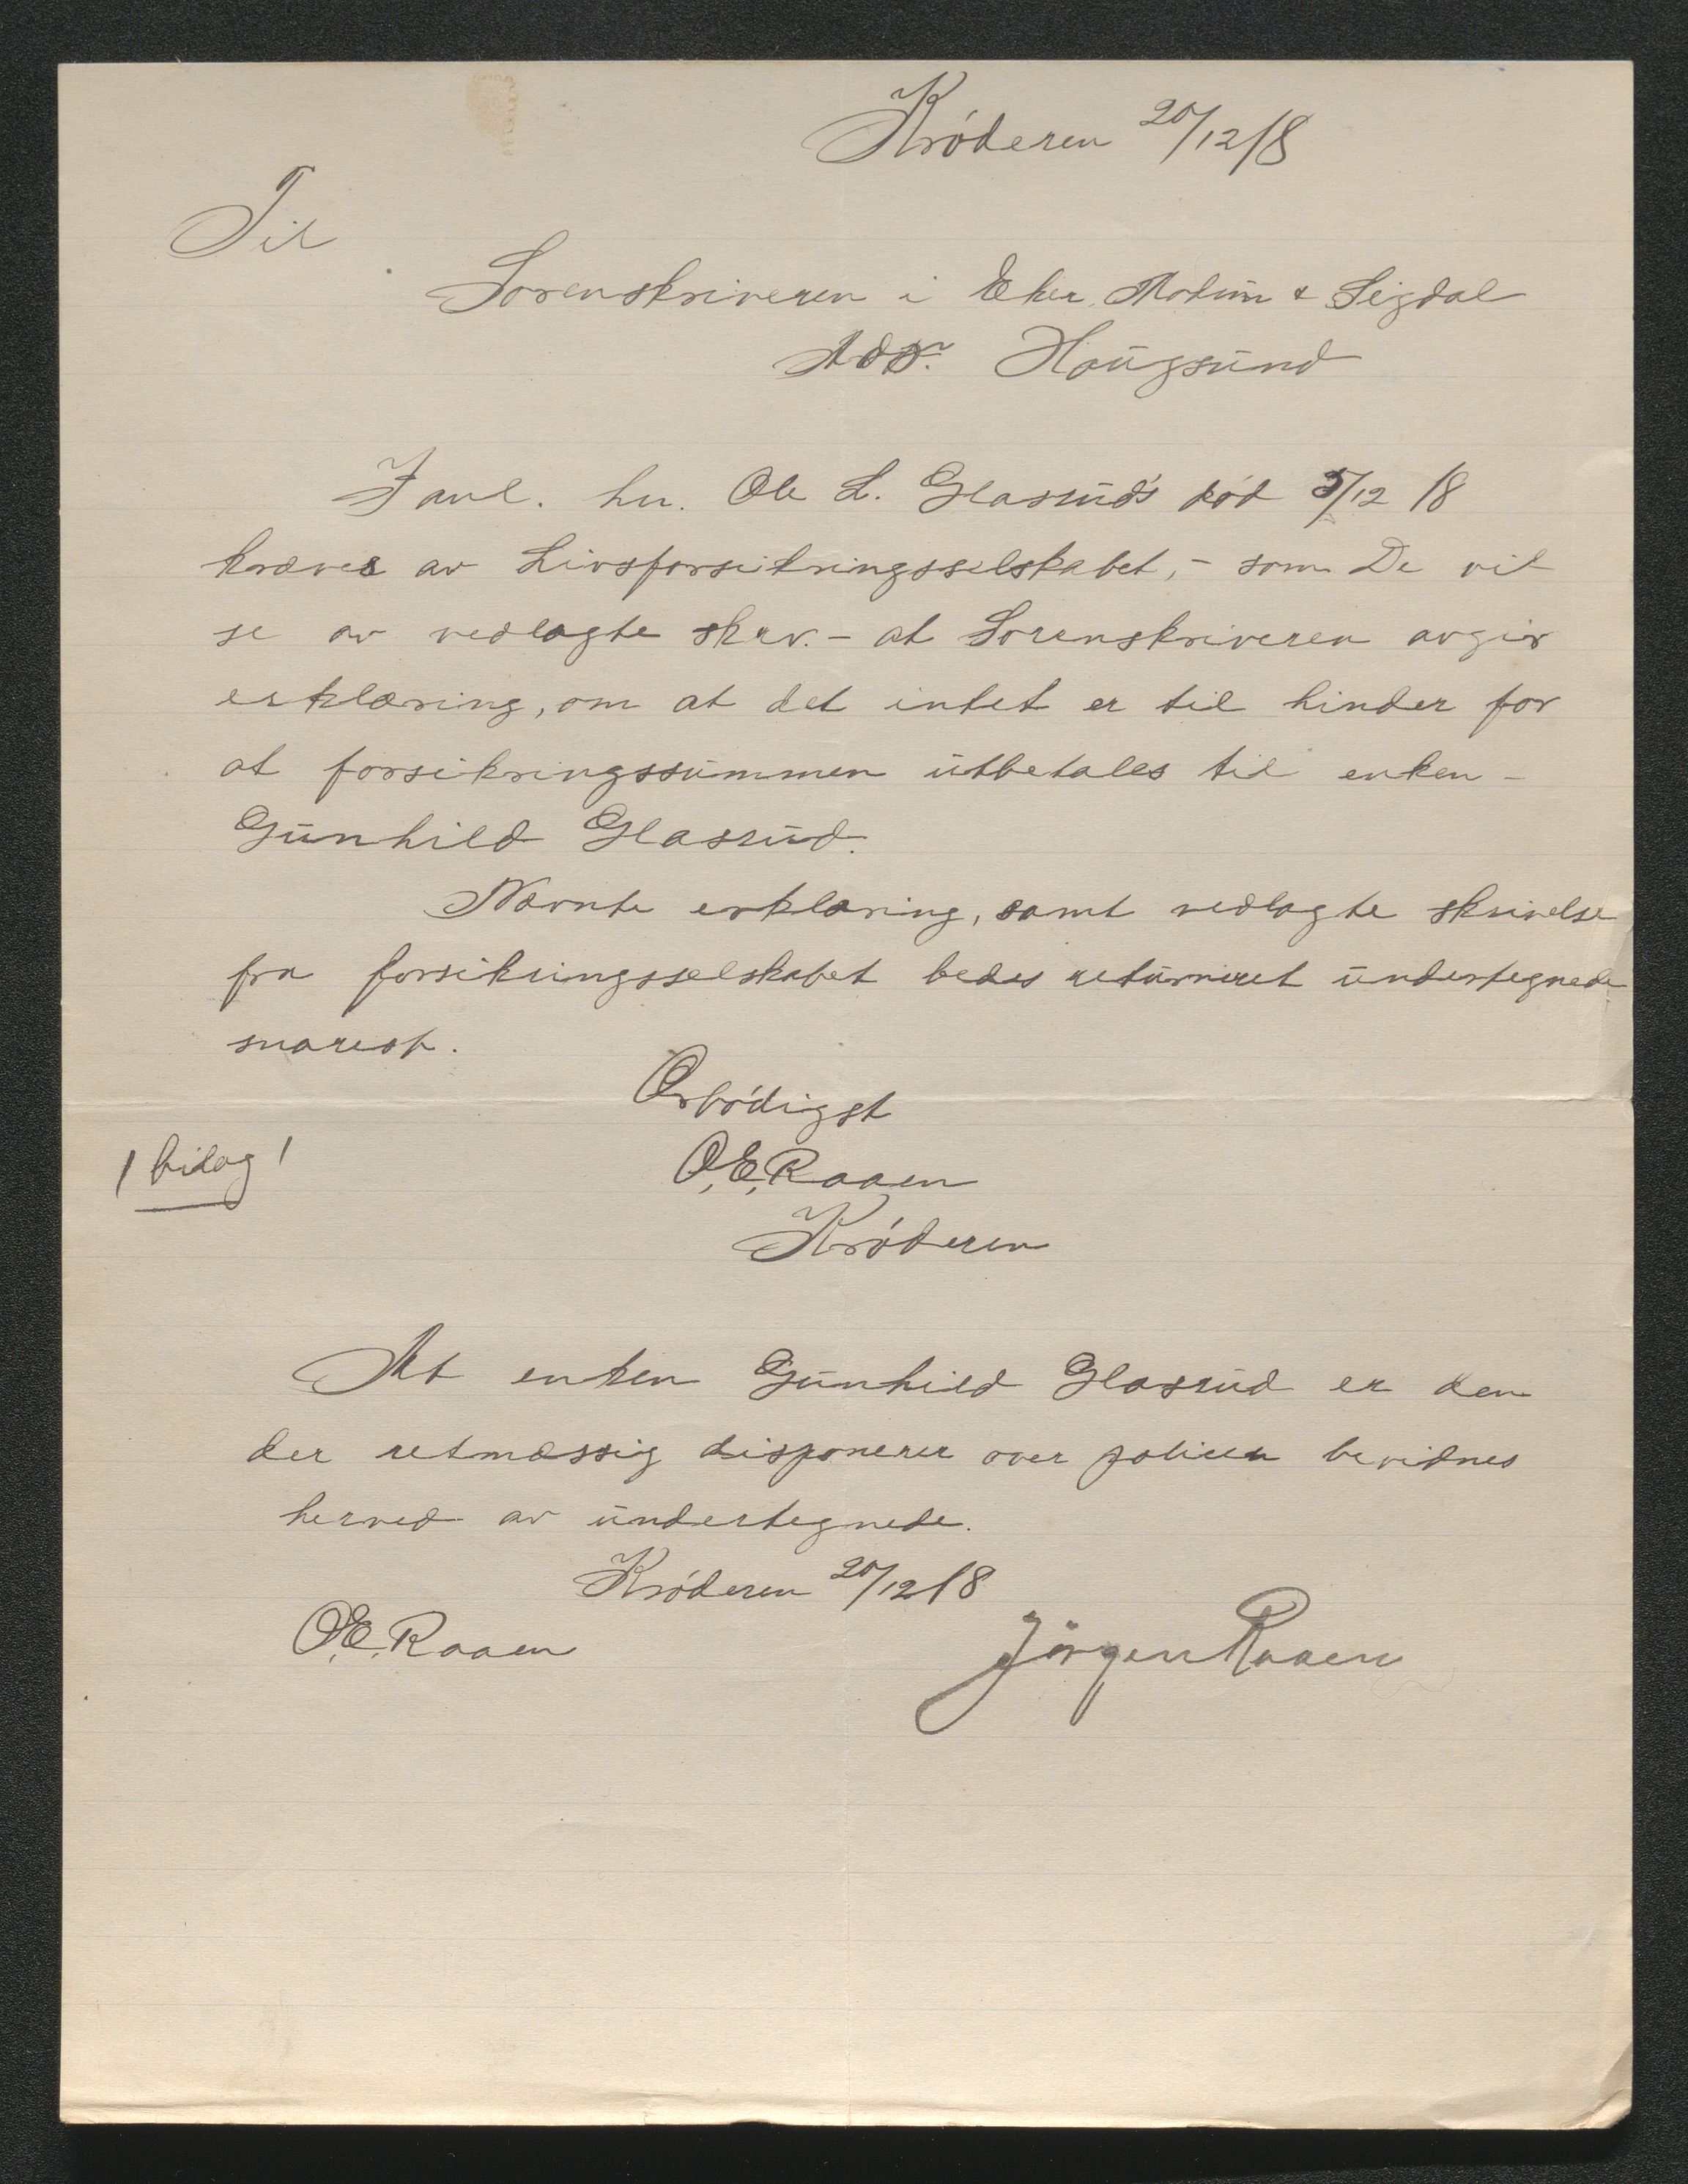 Krøderen 20/12 18
Til
Sorenskriveren i Eker, Modum & Sigdal
Adr. Hougsund
I anl. hr. Ole L. Glasrud's død 5/12 18
kræves av Livsforsikringsselskabet, - som De vil
se av vedlagte skrv. - at Sorenskriveren avgir
erklæring, om at det intet er til hinder for
at forsikringssummen utbetales til enken -
Gunhild Glasrud.
Nævnte erklæring, samt vedlagte skrivelse
fra forsikringsselskabet bedes returneret undertegnede
snarest.
Ærbødigst
1 bilag !
O. E. Raaen
Krøderen
At enken Gunhild Glasrud er den
der retmæssig disponerer over policen bevidnes
herved av undertegnede.
Krøderen 20/12 18
O. E. Raaen
Jörgen Raaen